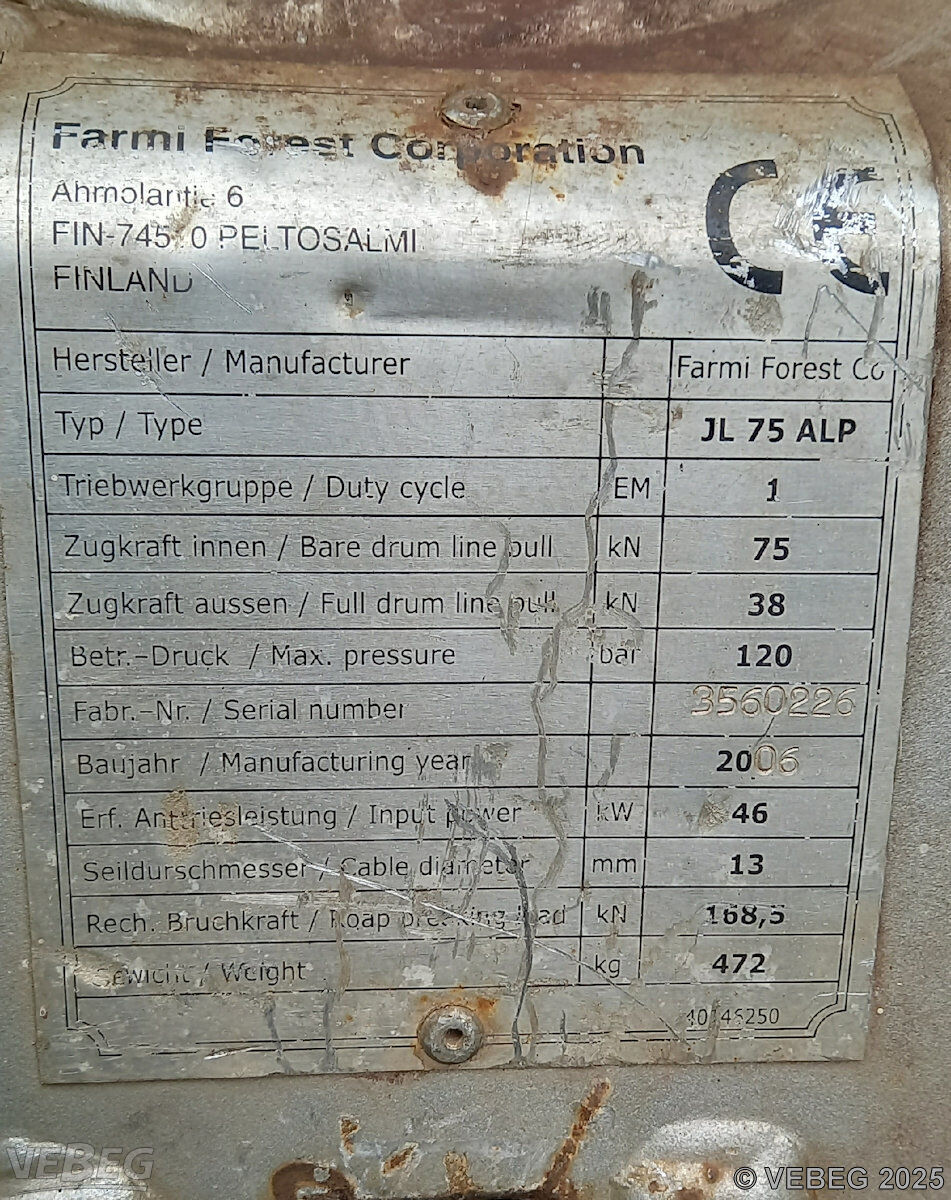 Farmi Forest Corporation
6
FIN- PELTOSALMI
FINLAND
CE
Hersteller / Manufacturer Farmi Forest Co
Typ / Type JL 75 ALP
Triebwerkgruppe / Duty cycle EM 1
Zugkraft innen / Bare drum line pull kN 75
Zugkraft aussen / Full drum line pull kN 38
Betr.-Druck / Max. pressure bar 120
Fabr.-Nr. / Serial number 3560226
Baujahr / Manufacturing year 2006
Erf. Antriesleistung / Input power kW 46
Seildurschmesser / Cable diameter mm 13
Rech. Bruchkraft / Roap breaking load kN 168,5
Gewicht / Weight kg 472
VEBEG
© VEBEG 2025